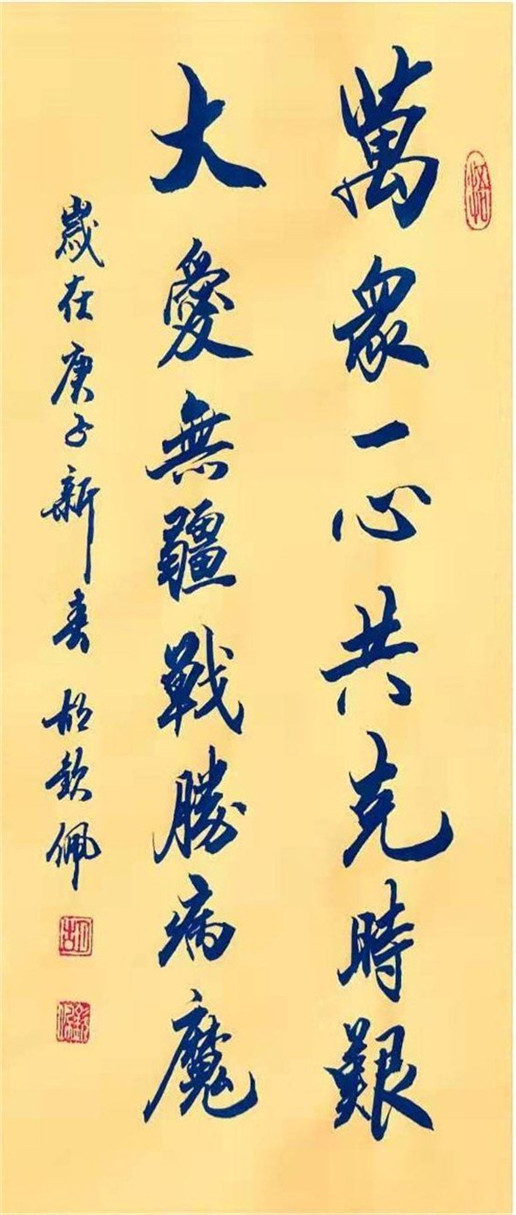 萬衆一心共克時艱
大愛無疆戰勝病魔
歲在庚子新春 胡欽佩